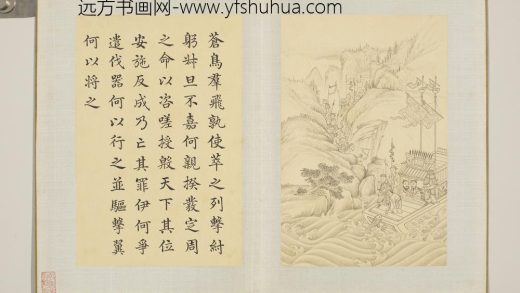 远方书画网-www.yfshuhua.com
蒼鳥羣飛孰使萃之列擊紂
躬叔旦不嘉何親揆發定周
之命以咨嗟授殷天下其位
安施反成乃亡其罪伊何爭
遣伐器何以行之並驅擊翼
何以將之